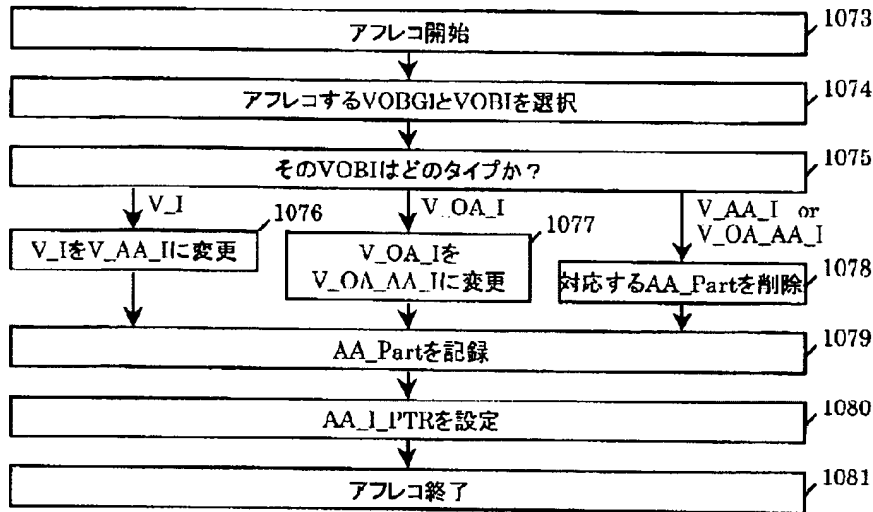 アフレコ開始
1073
アフレコするVOBGIとVOBIを選択
1074
そのVOBIはどのタイプか？
1075
V_I
1076
V_OA_I
1077
V_AA_I or
V_OA_AA_I
V_IをV_AA_Iに変更
V_OA_Iを
V_OA_AA_Iに変更
対応するAA_Partを削除
1078
AA_Partを記録
1079
AA_I_PTRを設定
1080
アフレコ終了
1081